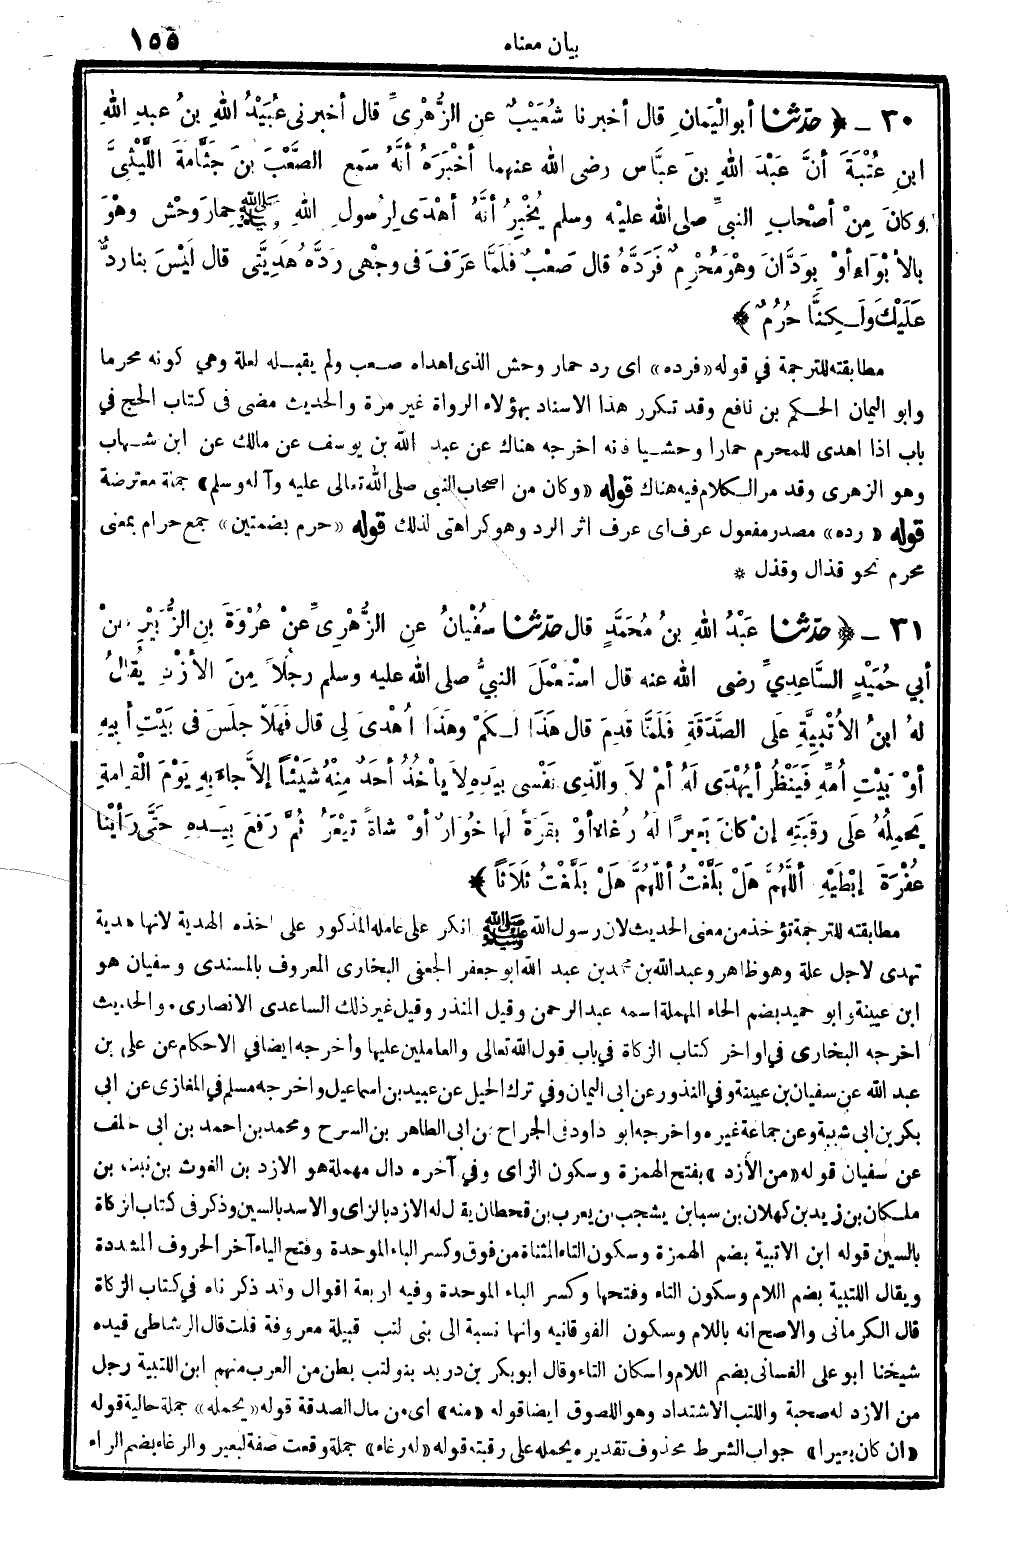 بيان معناه ١٥٥
٣٠ ـ ﴿ حدّثنا أبو اليَمانِ قال أخبرنا شُعَيْبٌ عنِ الزُّهْرِىِّ قال أخبرنى عُبَيْدُ اللهِ بنُ عبدِ اللهِ
ابنِ عُتْبَةَ أنَّ عَبْدَ اللهِ بنَ عبَّاس رضى الله عنهما أخْبَرَهُ أنَّهُ سَمِع الصَّعْبَ بنَ جَثَّامَةَ اللَّيْثِىَّ
وكانَ مِنْ أصْحابِ النبىِّ صلى الله عليْه وسلم يُخْبِرُ أنَّهُ أهْدَى لِرَسُولِ اللهِ ﷺ حِمارَ وحْش وهْوَ
بالأبْوَاءِ أوْ بِوَدَّانَ وهْوَ مُحْرِمٌ فَرَدَّهُ قال صَعْبٌ فَلَمَّا عَرَفَ فى وجْهِى رَدَّهُ هَدِيَّتِى قال لَيْسَ بنا رَدٌّ
عَلَيْكَ ولَـكِنَّا حُرُمٌ ﴾
مطابقته للترجمة في قوله «فرده» اى رد حمار وحش الذى اهداه صعب ولم يقبله لعلة وهي كونه محرما
وابو اليمان الحكم بن نافع وقد تكرر هذا الاسناد بهؤلاء الرواة غير مرة والحديث مضى فى كتاب الحج في
باب اذا اهدى للمحرم حمارا وحشيا فانه اخرجه هناك عن عبد الله بن يوسف عن مالك عن ابن شهاب
وهو الزهرى وقد مر الكلام فيه هناك قوله «وكان من اصحاب النبي صلى الله تعالى عليه وآله وسلم» جملة معترضة
قوله «رده» مصدر مفعول عرف اى عرف اثر الرد وهو كراهتى لذلك قوله «حرم بضمتين» جمع حرام بمعنى
محرم نحو قذال وقذل *
٣١ ـ ﴿ حدّثنا عَبْدُ اللهِ بنُ مُحَمَّدٍ قال حدّثنا سُفْيانُ عنِ الزُّهْرِىِّ عنْ عُرْوَةَ بنِ الزُّبَيْرِ عنْ
أبي حُمَيْدٍ السَّاعِدِيِّ رضى الله عنه قال اسْتَعْمَلَ النبيُّ صلى الله عليه وسلم رجُلاً مِنَ الأزْدِ يُقالُ
لهُ ابنُ الأُتْبِيَّةِ عَلَى الصَّدَقَةِ فَلَمَّا قَدِمَ قال هَذَا لَكُمْ وهَذَا أُهْدِىَ لِى قال فَهَلاَّ جَلَسَ فى بَيْتِ أبيهِ
أوْ بَيْتِ أُمِّهِ فَيَنْظُرَ أيُهْدَى لَهُ أمْ لاَ والَّذِى نَفْسى بيَدِهِ لاَ يأخُذُ أحَدٌ مِنْهُ شَيْئاً إلاَّ جاءَ بِهِ يَوْمَ القِيامَةِ
يَحْمِلُهُ عَلَى رقَبَتِهِ إنْ كانَ بَعِيرًا لهُ رُغاءٌ أوْ بقَرَةً لَها خُوَارٌ أوْ شاةً تَيْعَرُ ثُمَّ رَفعَ بِيَدِهِ حَتَّى رَأيْنا
عُفْرَةَ إبْطَيْهِ أللَّهُمَّ هَلْ بَلَّغْتُ أللَّهُمَّ هَلْ بَلَّغْتُ ثَلاَثاً ﴾
مطابقته للترجمة تؤخذ من معنى الحديث لان رسول الله ﷺ انكر على عامله المذكور على اخذه الهدية لانها هدية
تهدى لاجل علة وهو ظاهر وعبد الله بن محمد بن عبد الله ابو جعفر الجعفى البخارى المعروف بالمسندى وسفيان هو
ابن عيينة وابو حميد بضم الحاء المهملة اسمه عبد الرحمن وقيل المنذر وقيل غير ذلك الساعدى الانصارى . والحديث
اخرجه البخارى في اواخر كتاب الزكاة في باب قول الله تعالى والعاملين عليها واخرجه ايضا في الاحكام عن على بن
عبد الله عن سفيان بن عيينة وفي النذور عن ابى اليمان وفي ترك الحيل عن عبيد بن اسماعيل واخرجه مسلم في المغازى عن ابى
بكر بن ابى شيبة وعن جماعة غيره واخرجه ابو داود فى الجراح عن ابى الطاهر بن السرح ومحمد بن احمد بن ابى خلف
عن سفيان قوله «من الأزد» بفتح الهمزة وسكون الزاى وفي آخره دال مهملة هو الازد بن الغوث بن نبت بن
ملكان بن زيد بن كهلان بن سبا بن يشجب بن يعرب بن قحطان يقال له الازد بالزاى والاسد بالسين وذكر فى كتاب الزكاة
بالسين قوله ابن الاتبية بضم الهمزة وسكون التاء المثناة من فوق وكسر الباء الموحدة وفتح الياء آخر الحروف المشددة
ويقال اللتبية بضم اللام وسكون التاء وفتحها وكسر الباء الموحدة وفيه اربعة اقوال وقد ذكرناه في كتاب الزكاة
قال الكرمانى والاصح انه باللام وسكون الفوقانيه وانها نسبة الى بنى لتب قبيلة معروفة قلت قال الرشاطى قيده
شيخنا ابو على الغسانى بضم اللام واسكان التاء وقال ابو بكر بن دريد بنو لتب بطن من العرب منهم ابن اللتبية رجل
من الازد له صحبة واللتب الاشتداد وهو اللصوق ايضا قوله «منه» اى من مال الصدقة قوله «يحمله» جملة حالية قوله
«ان كان بعيرا» جواب الشرط محذوف تقديره يحمله على رقبته قوله «له رغاء» جملة وقعت صفة لبعير والرغاء بضم الراء